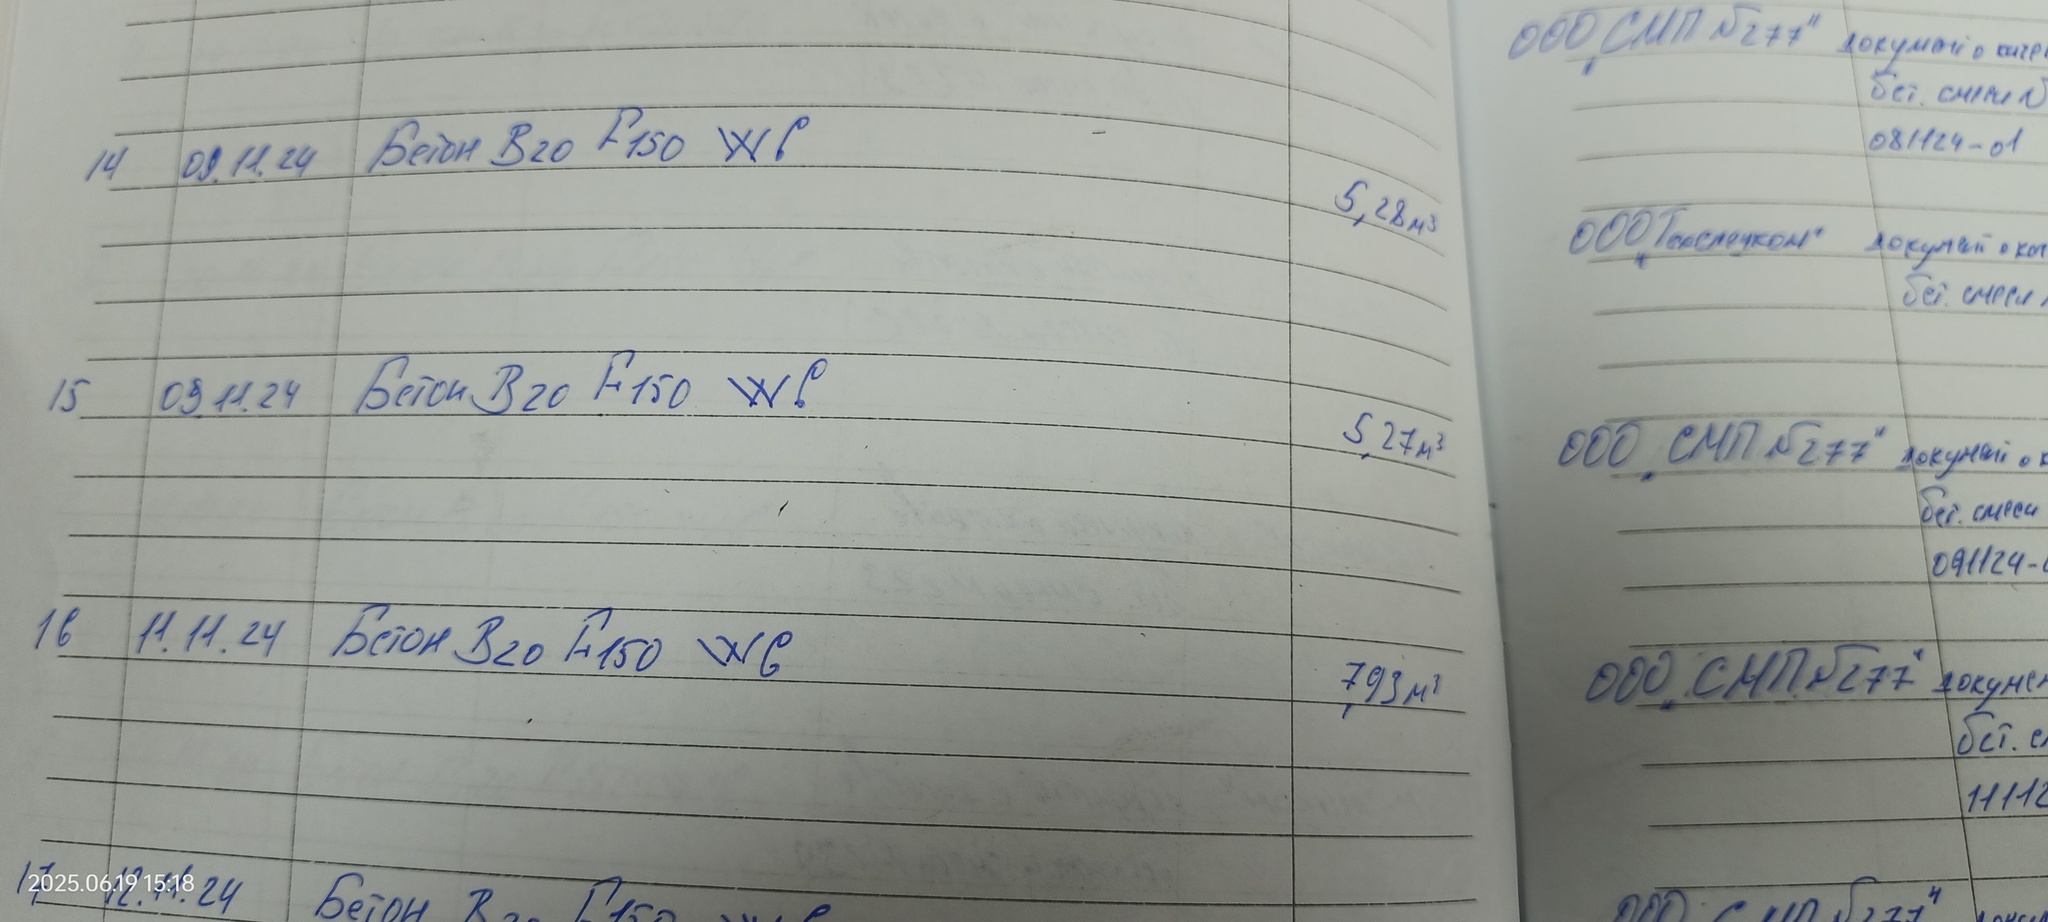 ООО „СМП №277" документ о
бет. смеси №
081124-01
14 09.11.24 Бетон В20 F150 W6
5,28м³
ООО „ документ о
бет. смеси
15 09.11.24 Бетон В20 F150 W6
5,27м³
ООО „СМП №277" документ о
бет. смеси
091124-
16 11.11.24 Бетон В20 F150 W6
7,93м³
ООО „СМП №277"
бет.
11112
17 12.11.24 Бетон В20 F150 W6
ООО „СМП №277"
2025.06.19 15:18